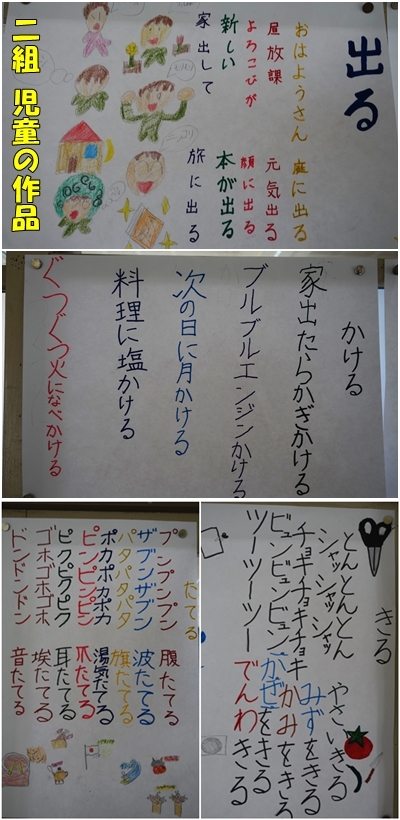 二組 児童の作品
出る
おはようさん 庭に出る
昼放課 元気出る
よろこびが 顔に出る
新しい 本が出る
家出して 旅に出る
かける
家出たらかぎかける
ブルブルエンジンかける
次の日に月かける
料理に塩かける
ぐつぐつ火になべかける
たてる
プンプンプン 腹たてる
ザブンザブン 波たてる
パタパタパタ 旗たてる
ポカポカポカ 湯気たてる
ピンピンピン 爪たてる
ピクピクピク 耳たてる
ゴホゴホゴホ 埃たてる
ドンドンドン 音たてる
きる
とんとんとん やさいきる
シャッシャッシャッ みずをきる
チョキチョキチョキ かみをきる
ビュンビュンビュン かぜをきる
ツーツーツー でんわきる